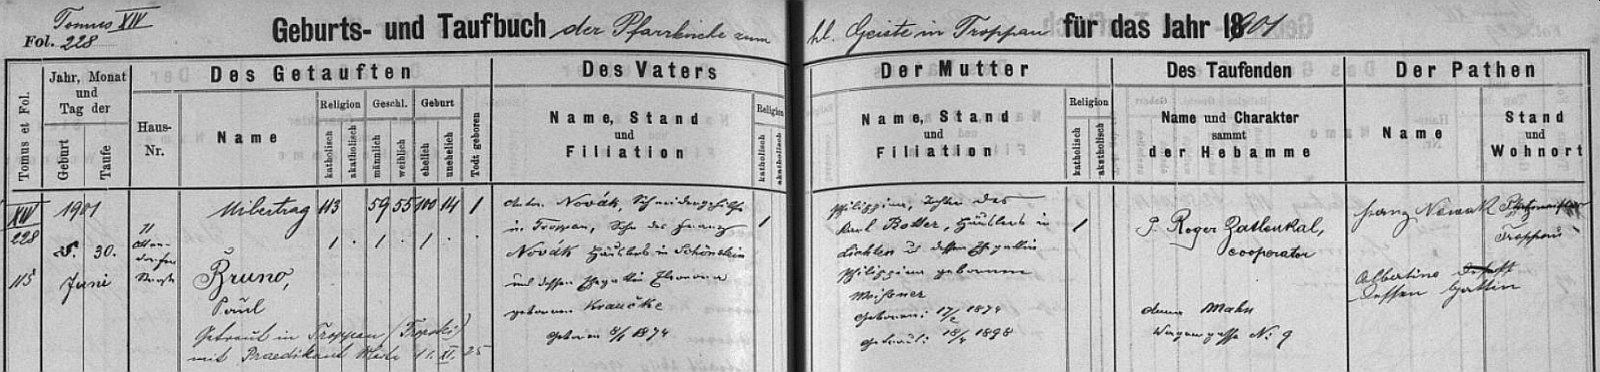 Tomus XIV
Fol. 228
Geburts- und Taufbuch der Pfarrkirche zum hl. Geiste in Troppau für das Jahr 1901
Tomus et Fol.
Jahr, Monat
und
Tag der
Geburt
Taufe
Des Getauften
Haus-
Nr.
Name
Religion
katholisch
akatholisch
Geschl.
männlich
weiblich
Geburt
ehelich
unehelich
Todt geboren
Des Vaters
Name, Stand
und
Filiation
Religion
katholisch
akatholisch
Der Mutter
Name, Stand
und
Filiation
Religion
katholisch
akatholisch
Des Taufenden
Name und Charakter
sammt
der Hebamme
Der Pathen
Name
Stand
und
Wohnort
XIV
228
115
1901
5. 30.
Juni
11
Otten-
dorfer
Übertrag 113 59 55 100 14 1
1 . 1 . 1 . .
Bruno,
Paul
Getraut in Troppau
mit Praedikat 11. XI. 25
Anton Novák, Schneidergehilfe
in Troppau, Sohn des Franz
Novák Häuslers in Schönstein
und dessen Ehegattin Eleonora
geborenen
geboren 8/1 1874
1
Philippine, Tochter des
Karl Häuslers in
und dessen Ehegattin
Philippine geborenen
Meißner
Geboren: 17/2 1874
Getraut: 18/4 1898
1
P. Roger Zatloukal,
cooperator
Anna Mahn
Wagengasse No. 9
Franz Nowak
Troppau
Albertine
dessen Gattin